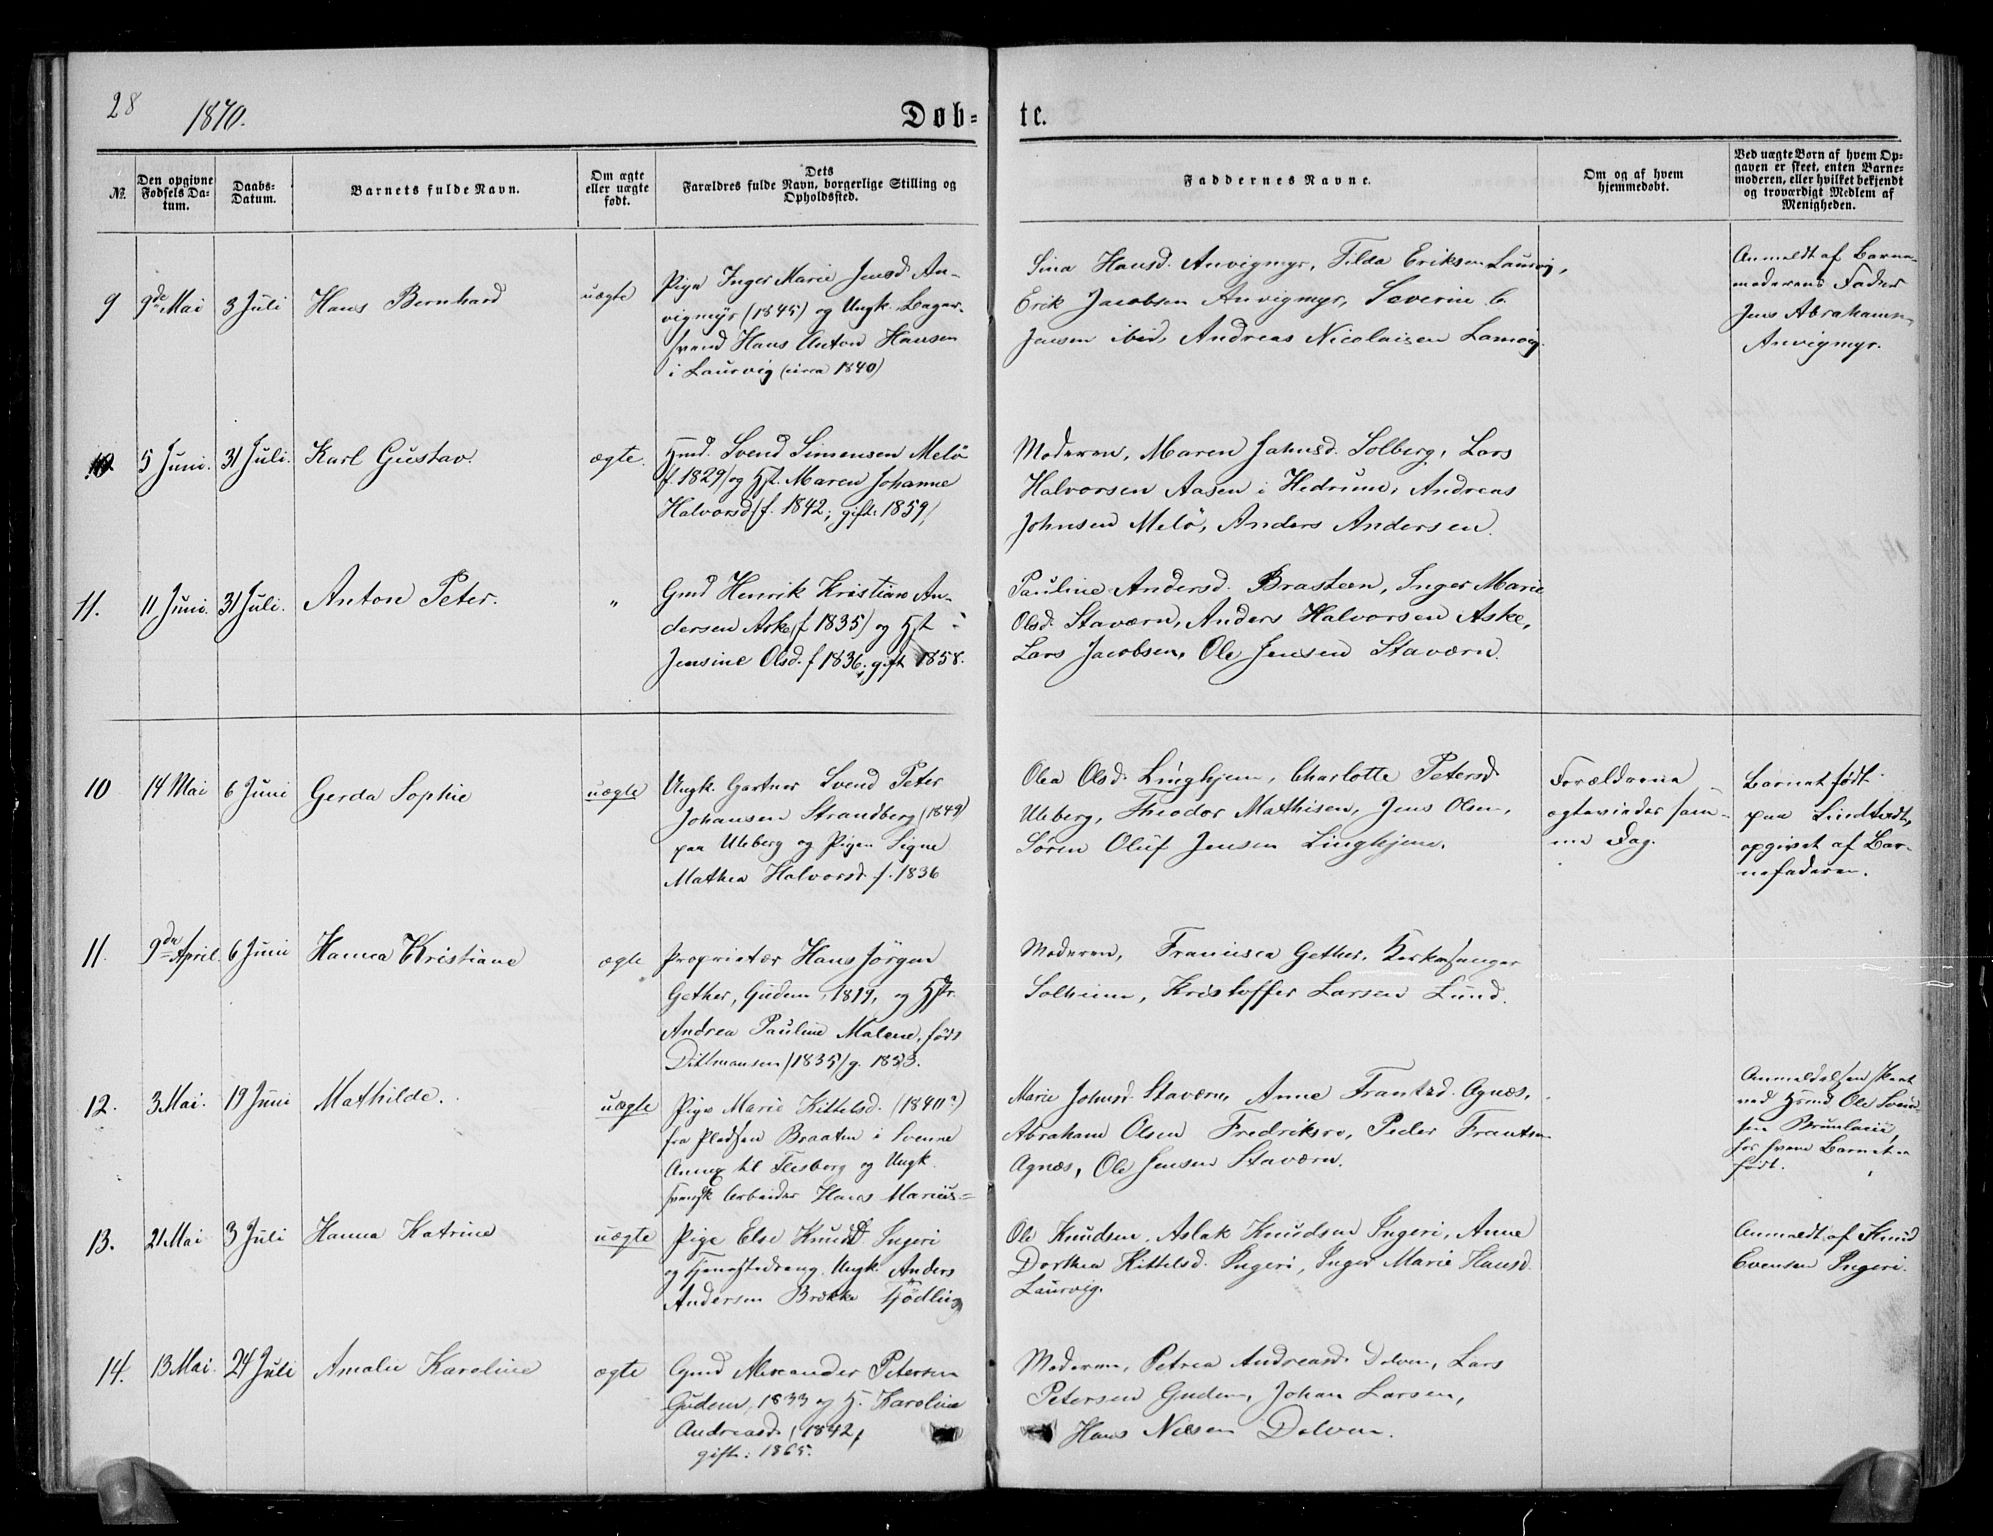 28
1870.
Døb-
te.
№.
Den opgivne Fødsels Da-tum.
Daabs-Datum.
Barnets fulde Navn.
Om ægte eller uægte født.
Dets
Forældres fulde Navn, borgerlige Stilling og Opholdssted.
Faddernes Navne.
Om og af hvem hjemmedøbt.
Ved uægte Børn af hvem Op-gaven er skeet, enten Barne-moderen, eller hvilket bekjendt og troværdigt Medlem af Menigheden.
9 9de Mai 3 Juli Hans Bernhard uægte
Pige Inger Marie Jensd. An-
vigmyr (1845) og Ungk. Bager-
svend Hans Anton Hansen
i Laurvig (circa 1840)
Sina Hansd. Anvigmyr, Tilda Eriksen Laurvig,
Erik Jacobsen Anvigmyr, Severine C.
Jensen ibid, Andreas Nicolaisen Laurvig.
Anmeldt af Barne-
moderens Fader
Jens Abrahams.
Anvigmyr.
10 5 Juni. 31 Juli. Karl Gustav. ægte.
Hmd. Svend Simensen Melö
f. 1829) og Hst. Maren Johanne
Halvorsd. (f. 1842, gift: 1859)
Moderen, Maren Jahnsd. Solberg, Lars
Halvorsen Aasen i Hedrum, Andreas
Johnsen Melö, Anders Andersen.
11. 11 Juni. 31 Juli. Anton Peter. "
Gmd Henrik Kristian An-
dersen Aske (f 1835) og Hst
Jensine Olsd. f 1836, gift 1858.
Pauline Andersd. Brasteen, Inger Marie
Olsd. Stavern, Anders Halvorsen Aske,
Lars Jacobsen, Ole Jensen Stavern.
10 14 Mai 6 Juni Gerda Sophie uægte
Ungk. Gartner Svend Peter
Johansen Strandberg (1849)
paa Uleberg og Pigen Signe
Mathea Halvorsd. f. 1836
Olea Olsd. Linghjem, Charlotte Petersd.
Uleberg, Theodor Mathisen, Jens Olsen,
Søren Oluf Jensen Linghjem.
Forældrene
ægteviedes sam-
me Dag.
Barnet født
paa Lindtvedt,
opgivet af Bar-
nefaderen.
11. 9de April. 6 Juni Hanna Kristiane ægte
Proprietær Hans Jörgen
Gether, Gudem, 1819, og Hstr.
Andrea Pauline Malene, født
Dittmansen (1835) g. 1853.
Moderen, Francisca Gether, Kirkesanger
Solheim, Kristoffer Larsen Lund.
12. 3 Mai. 19 Juni Mathilde. uægte
Pige Marie Kittelsd. (1840?)
fra Pladsen Braaten i Svenne
Annex til Flesberg og Ungk.
svensk Arbeider Hans Marius-
Marie Johnsd. Stavern, Anne Frantsd. Agnæs,
Abraham Olsen Fredriksvo, Peder Frants.
Agnæs, Ole Jensen Stavern.
Anmeldelsen skeet
ved Hsmd Ole Svend-
sen Brunlanæs,
hos hvem Barnet er
født.
13. 21 Mai 3 Juli Hanna Katrine uægte
Pige Else Knudsd. Ingeri
og Tjenestedreng Ungk. Anders
Andersen Brække Tjödling
Ole Knudsen, Aslak Knudsen Ingeri, Anne
Dorthea Kittelsd. Ingeri, Inger Marie Hansd.
Laurvig.
Anmeldt af Knud
Evensen Ingeri.
14. 13 Mai. 24 Juli Amalie Karoline ægte
Gmd Alexander Petersen
Gudem, 1833 og H. Karoline
Andreasd. (1842,
gift: 1865.
Moderen, Petrea Andreasd. Dolven, Lars
Petersen Gudem, Johan Larsen,
Hans Nilsen Dolven.